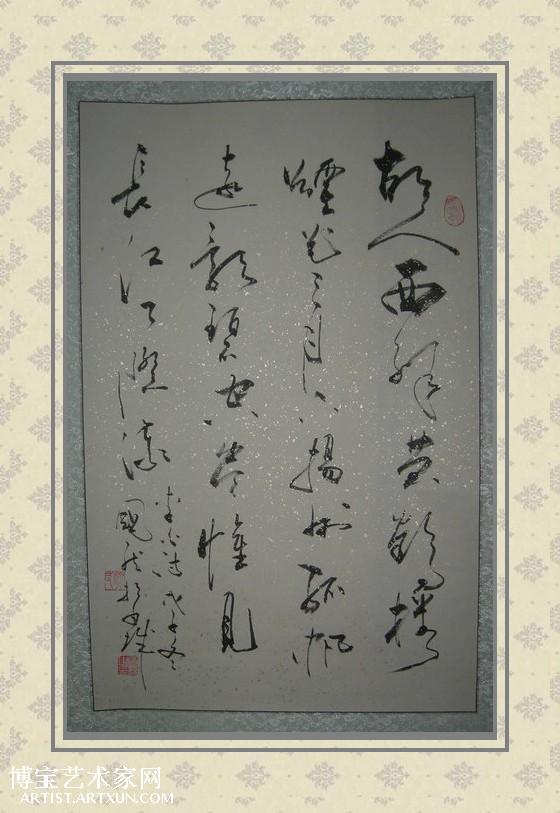 故人西辞黄鹤楼
煙花三月下揚州孤帆
远影碧空尽惟見
長江天際流
李白诗戊子冬
博宝艺术家网
ARTIST.ARTXUN.COM